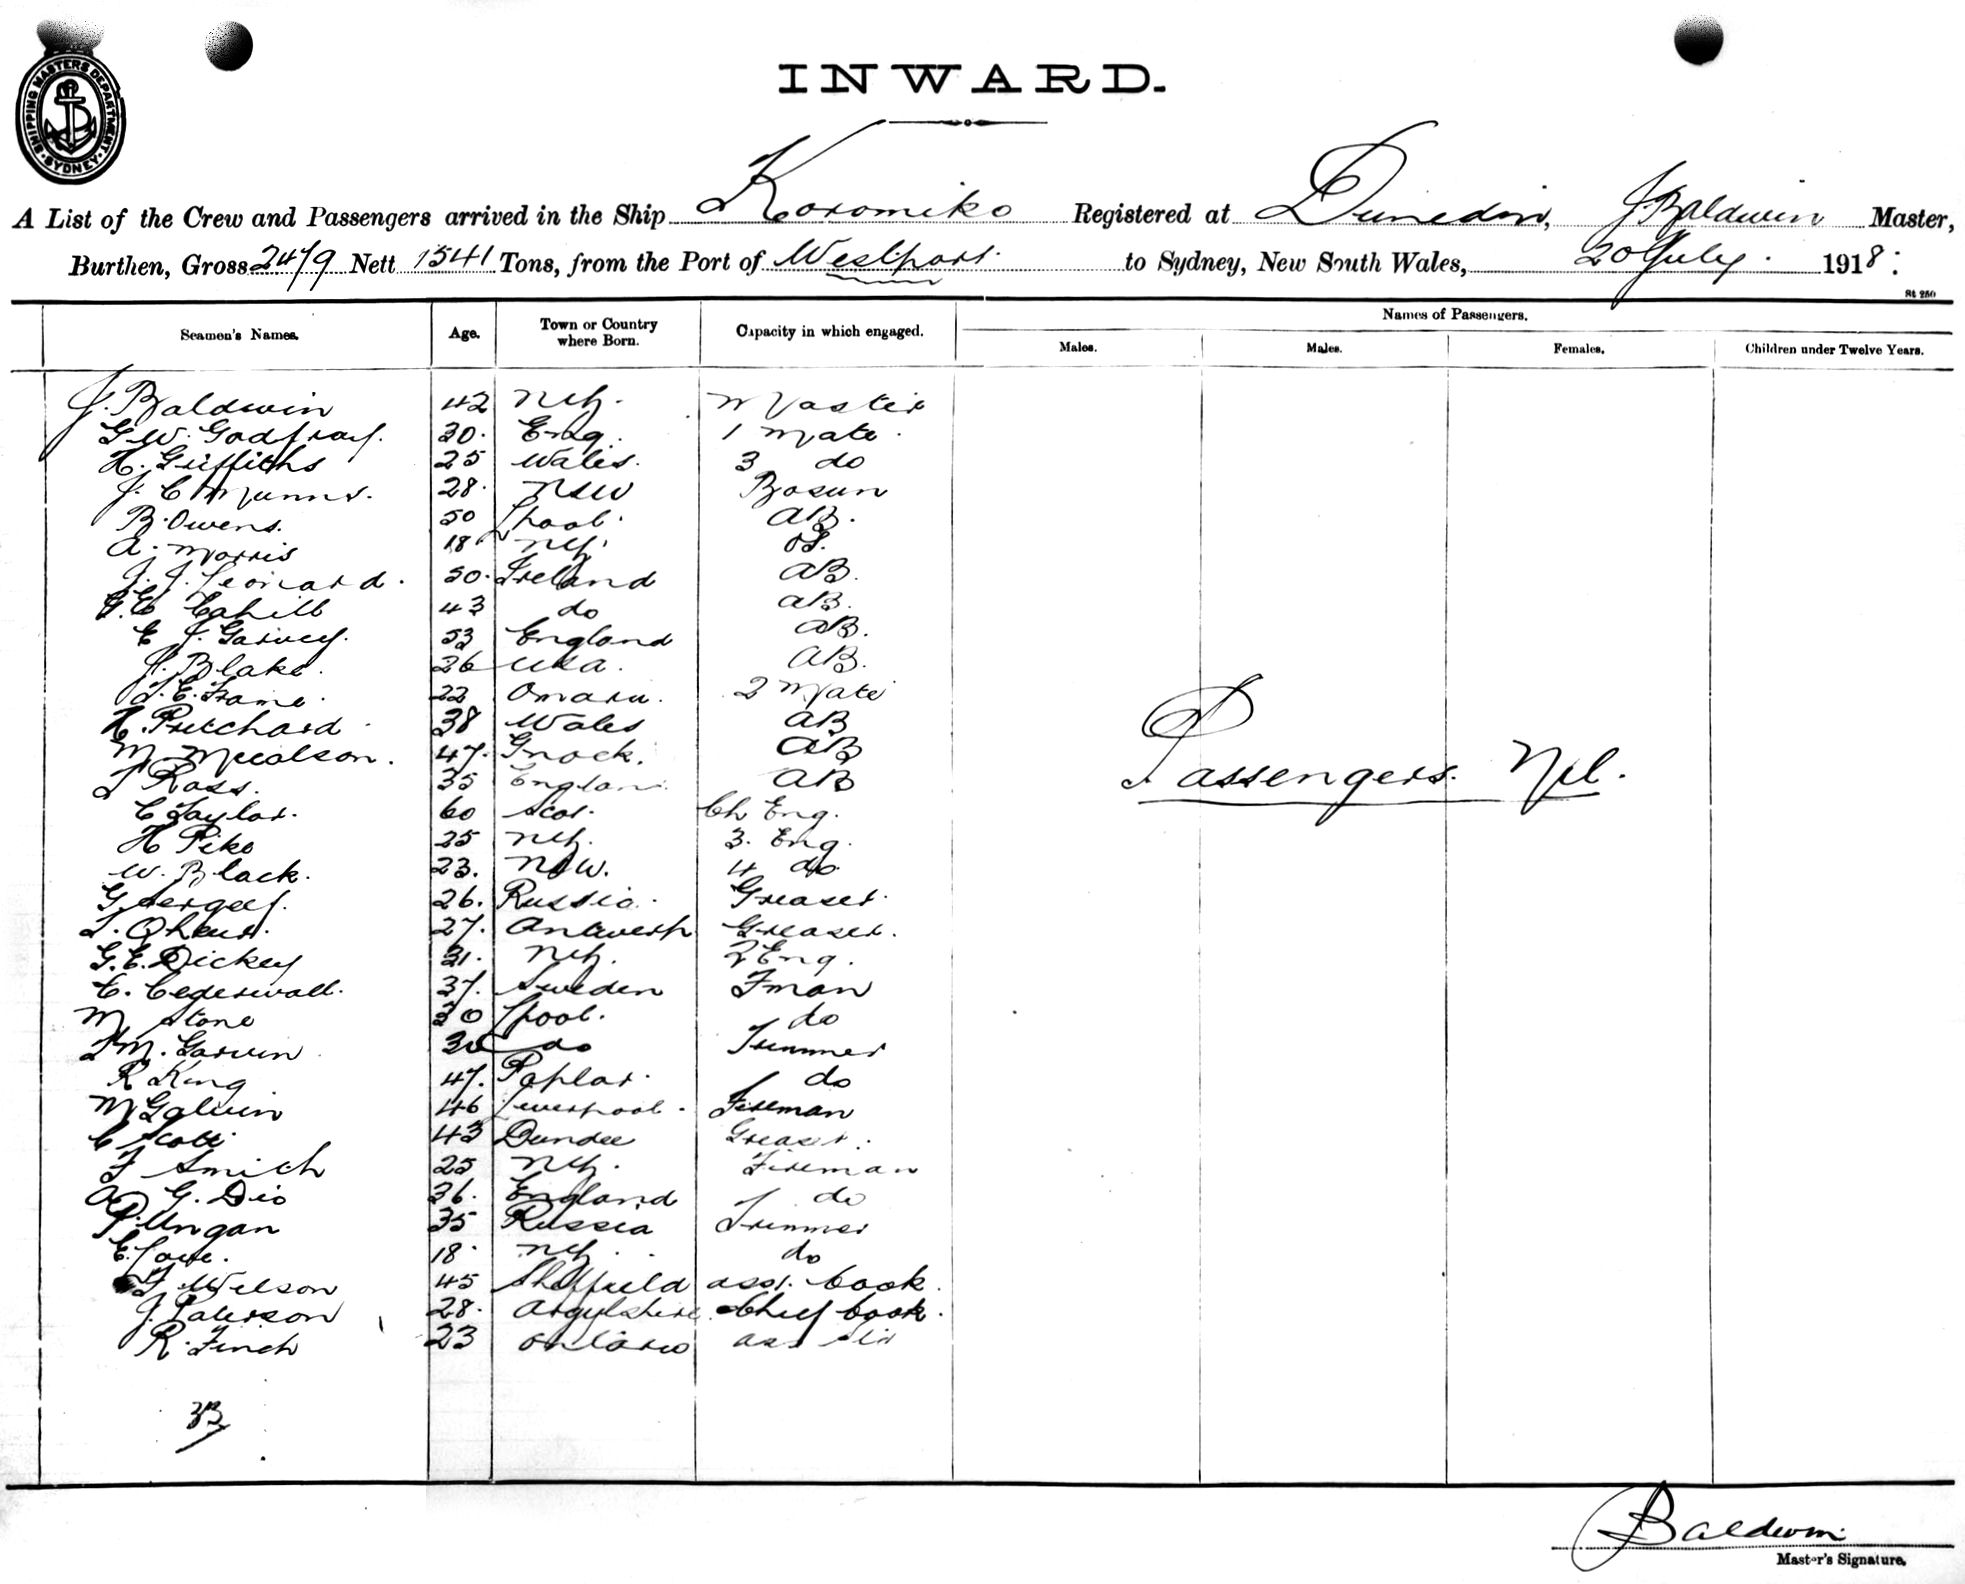 SHIPPING MASTERS DEPARTMENT SYDNEY
INWARD.
A List of the Crew and Passengers arrived in the Ship Koromiko Registered at Dunedin, J Baldwin Master,
Burthen, Gross 2479 Nett 1541 Tons, from the Port of Westport. to Sydney, New South Wales, 20 July. 1918.
St 250
Seamen's Names. Age. Town or Country where Born. Capacity in which engaged. Names of Passengers.
Males. Males. Females. Children under Twelve Years.
J. Baldwin 42 NZ. Master
G. W. Godfray. 30. Eng. 1 Mate.
H. Griffiths 25 Wales. 3 do
J. C Munns. 28. NSW Bosun
B. Owens. 50 Lpool. AB.
A. Morris 18 NZ. OS.
J. J. Leonard. 50. Ireland AB.
Cahill 43 do AB.
E J. Garvey. 53 England AB.
J. Blake. 26 USA. AB.
T. E. Frame. 22 Omaru. 2 Mate
H. Pritchard. 38 Wales AB
M. 47. Gnock. AB
J Ross. 35 England AB
C Taylor. 60 Scot. Ch Eng.
H Pike 25 NZ. 3. Eng.
W. Black. 23. NSW. 4 do
G. Sergeef. 26. Russia. Greaser.
27. Antwerp Greaser.
G. E. Dickey 31. NZ. 2 Eng.
C. Cederwall. 37. Sweden Fman
M Stone 30 Lpool. do
M. Garvin 30 do Trimmer
R King 47. Poplar. do
M Galvin 46 Liverpool. Fireman
C Scott 43 Dundee Greaser.
F Smith 25 NZ. Fireman
A G. Dio 36. England do
P. Ungan 35 Russia Trimmer
E. Lowe. 18. NZ. do
F Wilson 45 Sheffield asst. Cook.
J. Paterson 28. Argylshire Chief Cook.
R. Finch 23 Ontario ass Str
33
Passengers. Nil.
Baldwin
Master's Signature.